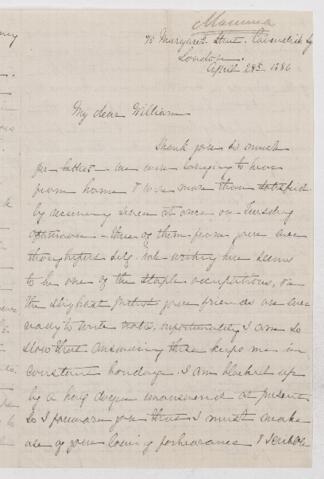 Mamma
90 Margaret Street. Cavendish Sq
London.
April 29th. 1886
My dear William
Thank you so much
for letter - we were longing to hear
from home & was more than satisfied
by receiving seven at once on Tuesday
afternoon - three of them from your ever
thoughtful self. note writing here seems
to be one of the staple occupations, on
the slightest pretext your friends are ever
ready to write notes, unfortunately I am so
slow that answering these keeps me in
constant bondage. I am blocked up
by a long dozen unanswered at present
so I forewarn you that I must make
use of your loving forbearance &